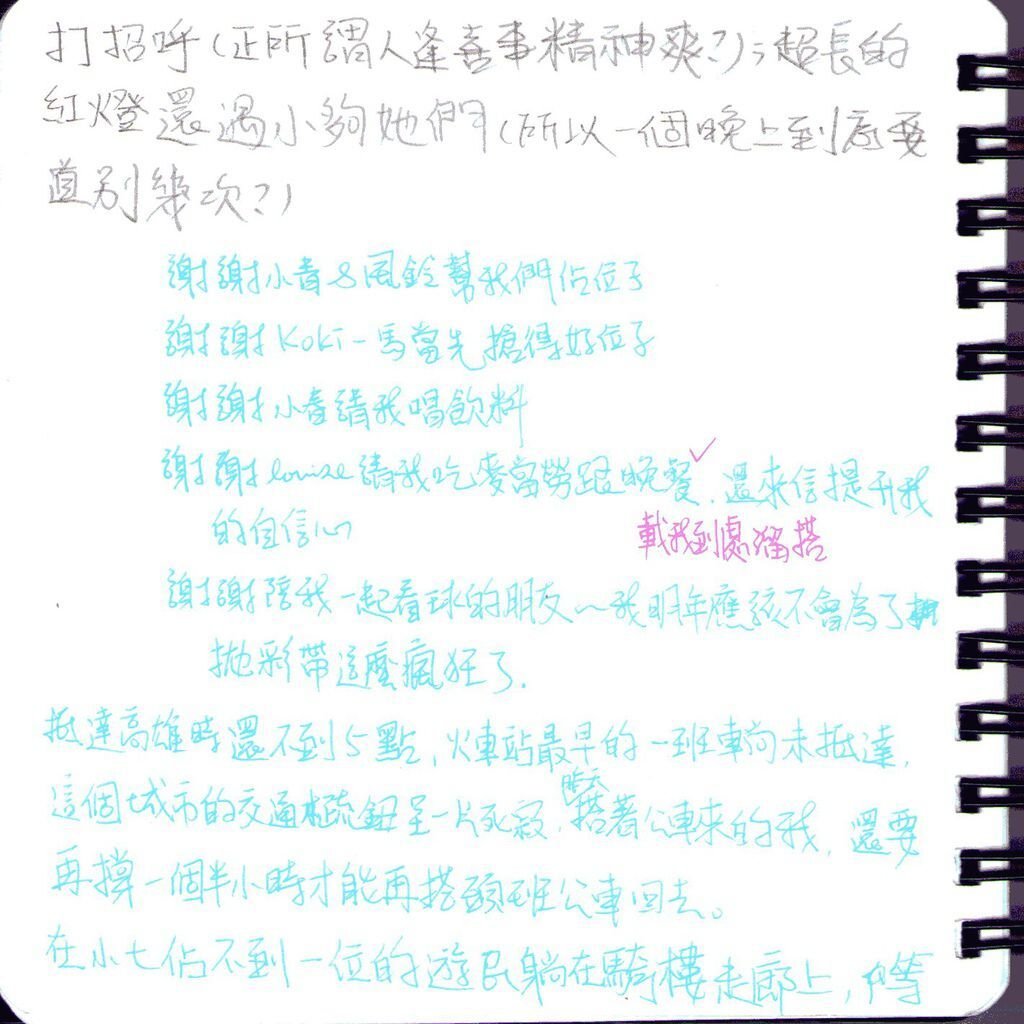 打招呼(正所謂人逢喜事精神爽?);超長的
紅燈還遇小夠她們(所以一個晚上到底要
道別幾次?)
謝謝小青&風鈴幫我們佔位子
謝謝Koki一馬當先搶得好位子
謝謝小春請我喝飲料
謝謝louise請我吃麥當勞跟晚餐✓,還來信提升我
的自信心
載我到處溜搭
謝謝陪我一起看球的朋友~我明年應該不會為了
拋彩帶這麼瘋狂了.
抵達高雄時還不到5點,火車站最早的一班車尚未抵達,
這個城市的交通樞鈕呈一片死寂,昨天搭著公車來的我,還要
再撐一個半小時才能再搭頭班公車回去。
在小七佔不到一位的遊民躺在騎樓走廊上,等